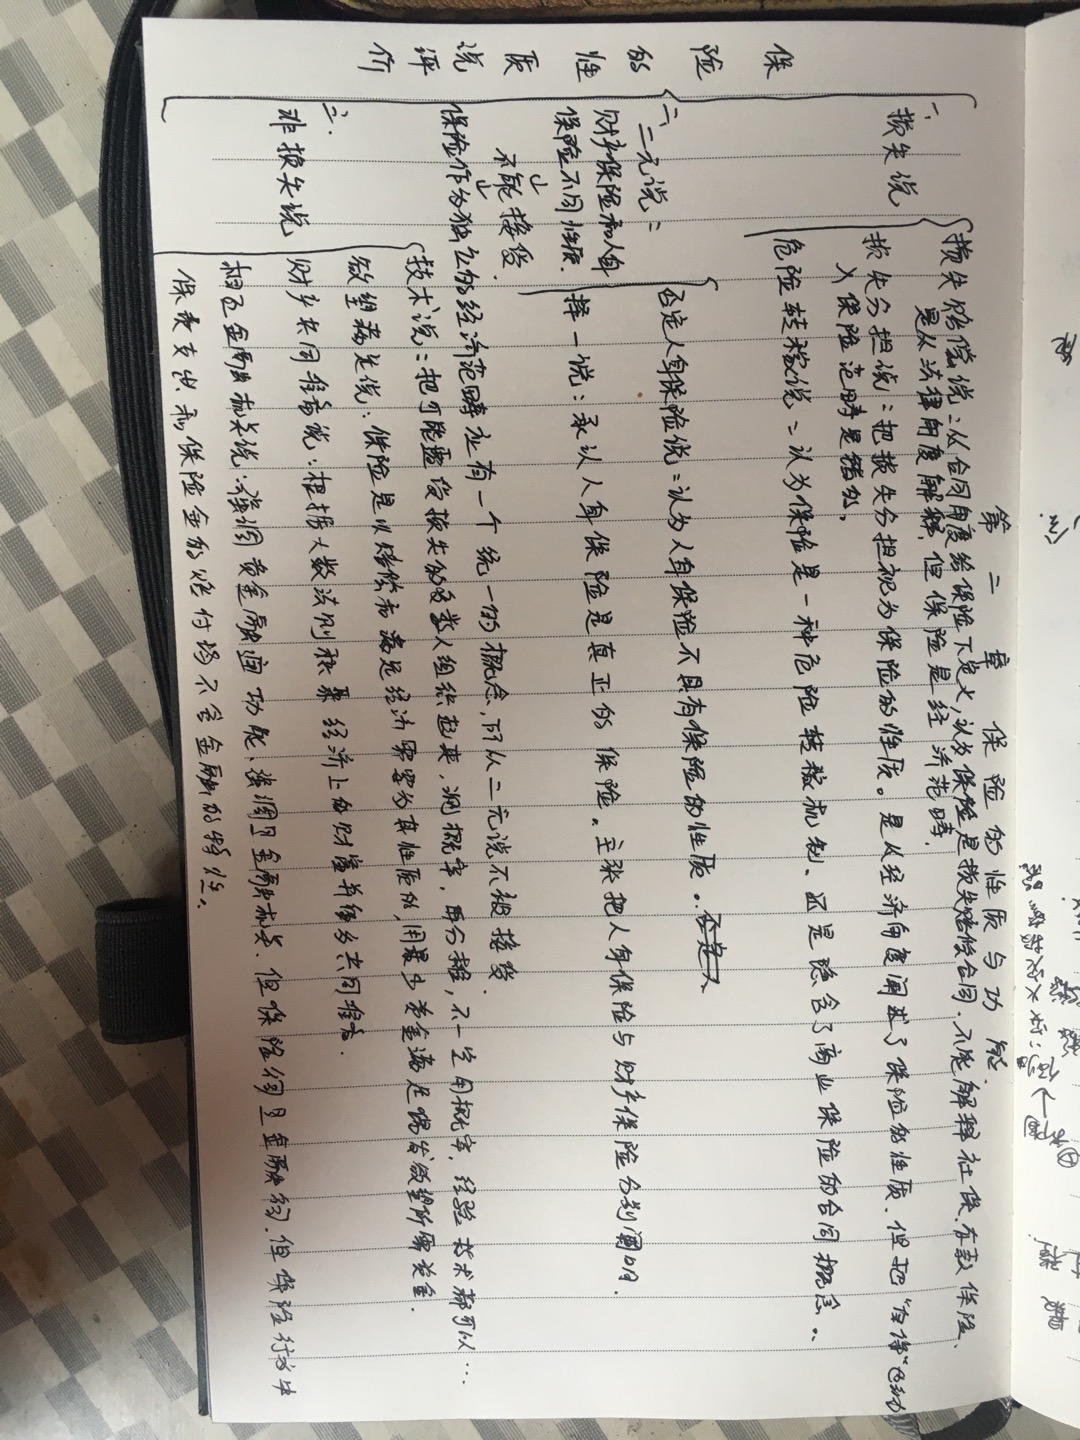 第二章 保险的性质与功能.
保险的性质说评价
一、损失说
损失赔偿说：从合同角度给保险下定义，认为保险是损失赔偿合同.不能解释社保.存款保险、
是从法律角度解释，但保险是经济范畴.
损失分担说：把损失分担视为保险的性质。是从经济角度阐述了保险的性质.但把“自保”也纳
入保险范畴是错的，
危险转移说：认为保险是一种危险转移机制、还是隐含了商业保险的合同概念..
二、二元说：
财产保险和人身
保险不同性质.
↓
不能接受.
↓
否定人身保险说：认为人身保险不具有保险的性质.
择一说：承认人身保险是真正的保险。主张把人身保险与财产保险分别阐明.
保险作为独立的经济范畴应有一个统一的概念，所以二元说不被接受.
三.非损失说
技术说：把可能遭受损失的多数人组织起来，测概率，再分摊，不一定用概率.经验技术都可以…
欲望满足说：保险是以赔偿和满足经济需要为其性质的，用最少资金满足偶发欲望所需资金.
财产共同准备说：根据大数法则积聚经济上的财富并作为共同准备.
相互金融机关说.强调资金融通功能、强调是金融机关.但保险行为中
保费支出和保险金的赔付均不含金融的特性。